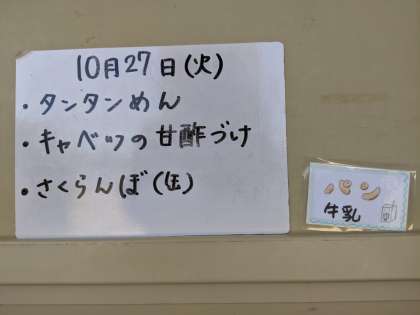 10月27日(火)
・タンタンめん
・キャベツの甘酢づけ
・さくらんぼ(缶)
パン
牛乳